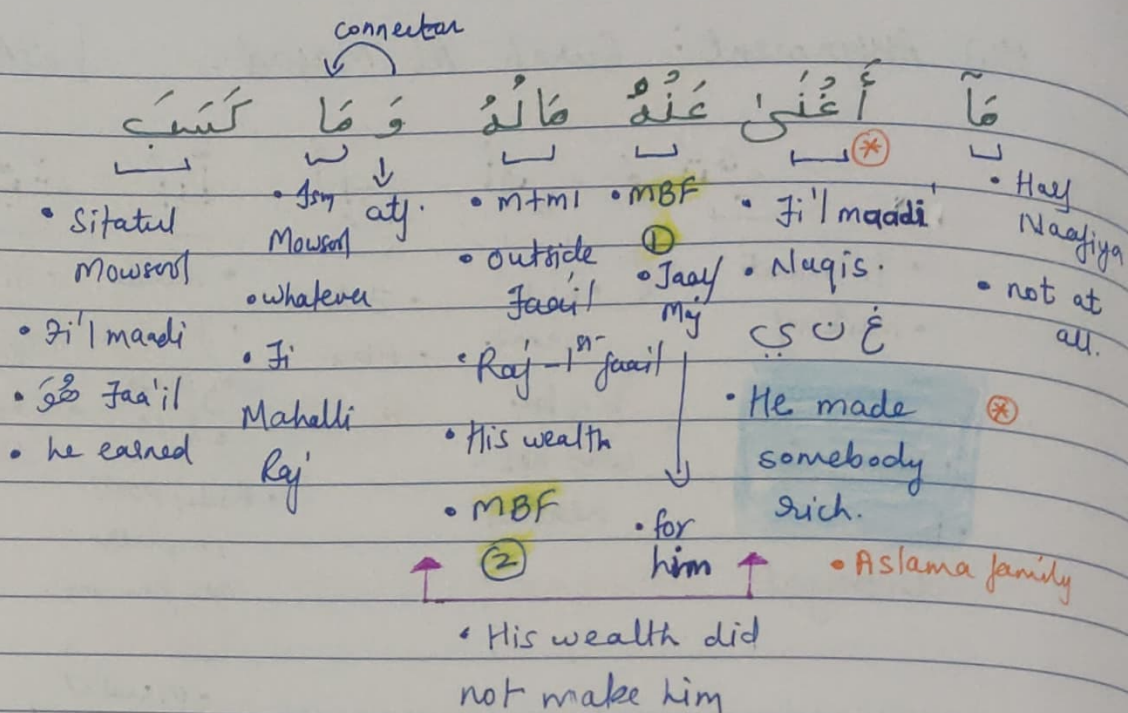 connector
مَآ أَغْنَىٰ عَنْهُ مَالُهُ وَ مَا كَسَبَ
• Harf
Naafiya
• not at
all.
*
• Fi'l maadi
• Naqis.
غ ن ي
• He made
somebody
rich.
*
• Aslama family
• MBF
1
• Jaar
Mj
• for
him
• m+mi
• outside
Faa'il
• Raf - 1st faail
• His wealth
• MBF
2
• His wealth did
not make him
atf.
• Ism
Mowsool
• whatever
• Fi
Mahalli
Raf'
• Sifatul
mowsool
• Fi'l maadi
• هُوَ Faa'il
• he earned